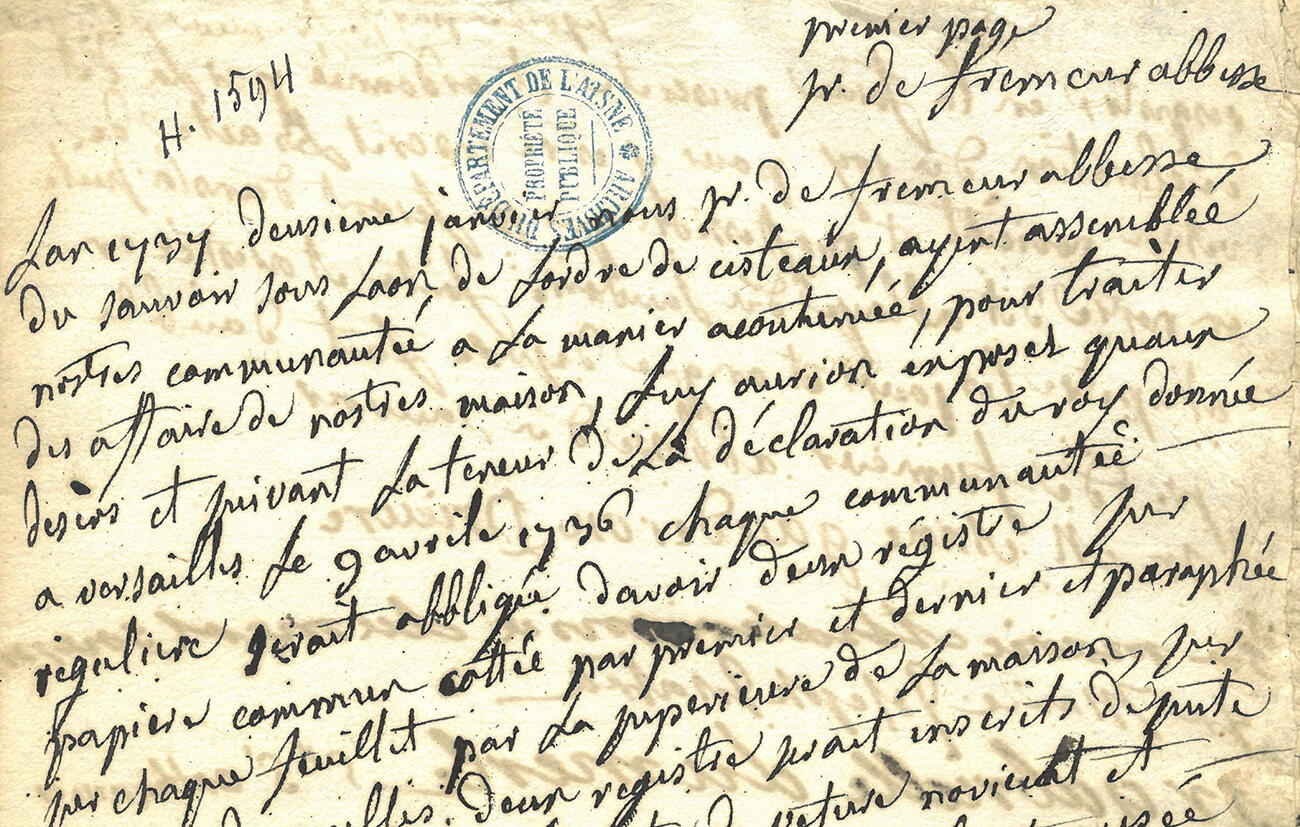 premier page
H. 1594
sr. de fremeur abbesse
ARCHIVES DU DÉPARTEMENT DE L'AISNE
PROPRIÉTÉ PUBLIQUE
Lan 1737 deusieme janvier nous sr. de fremeur abbesse
du sauvoir sous Laon de Lordre de cisteaux, ayent assembléé
nostres communautéé a La manier acoutuméé, pour traiter
des affaire de nostres maison, Luy aurion exposet quaux
desirs et suivant La teneur de La déclaration du roy donnée
a versailles Le 9 avrile 1736 chaque communautéé
reguliere serait abbligée davoir deux régistre sur
papiere commun cottée par premier et dernier et paraphée
sur chaque feuillet par La superieure de La maison, sur
deux registre serait inscrits de suite
veture noviciat et